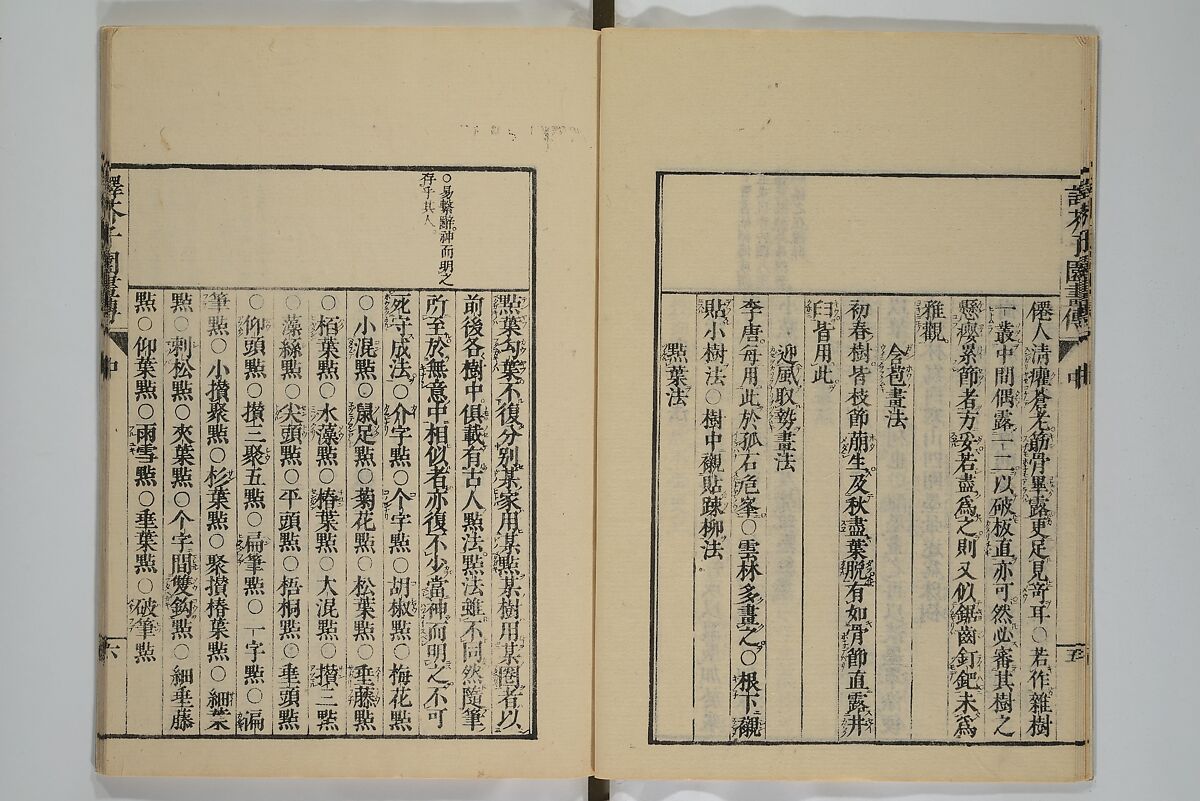 譯芥子園畫傳
中
五
僊人清癯蒼老筋骨畢露更足見奇耳○若作雜樹
一叢中間偶露一二以破板直亦可然必審其樹之
懸癭累節者方妥若盡爲之則又似鋸齒釘鈀未爲
雅觀
含苞畫法
初春樹皆枝節萠生及秋盡葉脫有如骨節直露井
臼皆用此
迎風取勢畫法
李唐每用此於孤石危峯○雲林多畫之○根下襯
貼小樹法○樹中襯貼疎柳法
點葉法
○易繫辭神而明之
存乎其人
點葉勾葉不復分別某家用某點某樹用某圈者以
前後各樹中俱載有古人點法點法雖不同然隨筆
所至於無意中相似者亦復不少當神而明之不可
死守成法○介字點○个字點○胡椒點○梅花點
○小混點○鼠足點○菊花點○松葉點○垂藤點
○栢葉點○水藻點○椿葉點○大混點○攢三點
○藻絲點○尖頭點○平頭點○梧桐點○垂頭點
○仰頭點○攢三聚五點○扁筆點○一字點○偏
筆點○小攢聚點○杉葉點○聚攢椿葉點○細葉
點○刺松點○夾葉點○个字間雙鈎點○細垂藤
點○仰葉點○雨雪點○垂葉點○破筆點
譯芥子園畫傳
中
六